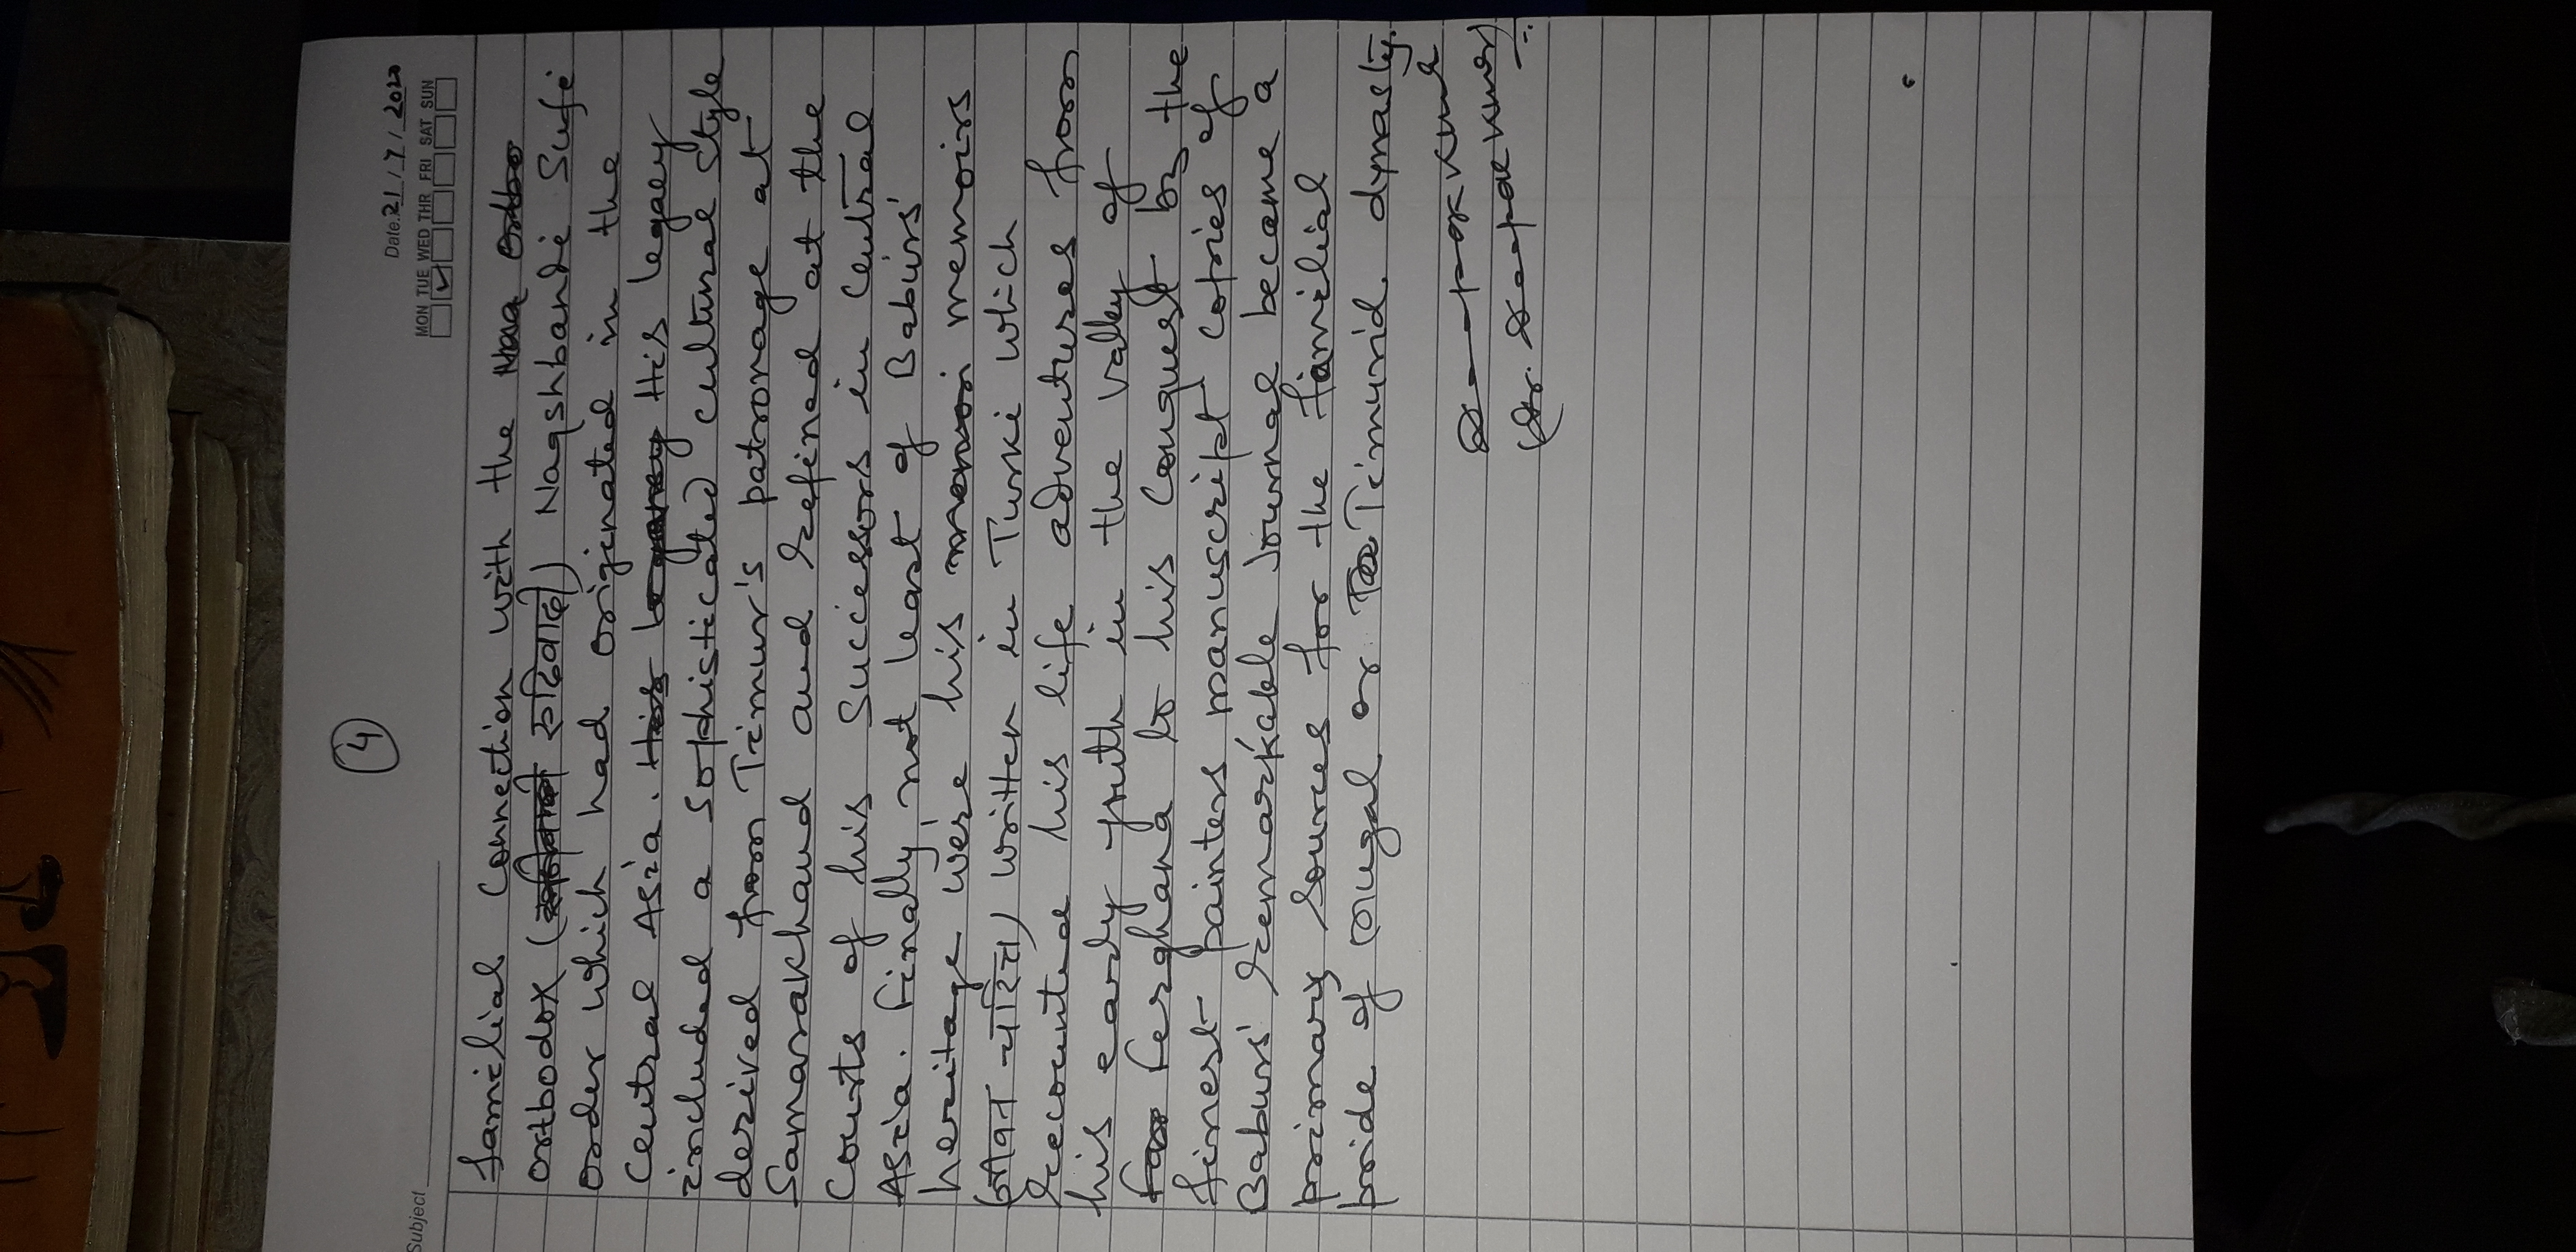 4
Date. 21/7/2020
MON TUE WED THR FRI SAT SUN
Subject
familial Connection with the
orthodox (रूढ़िवादी) Naqshbandi Sufi
order which had originated in the
Central Asia. His legacy
included a sophisticated cultural style
derived from Timur's patronage at
Samarakhand and refined at the
Courts of his Successors in Central
Asia. Finally, not least of Babur's
heritage were his memoirs
(जीवन-चरित्र) written in Turki which
recounted his life adventures from
his early youth in the valley of
Ferghana to his Conquest by the
finest painters manuscript copies of
Babur's remarkable Journal become a
primary sources for the familial
pride of Mugal or Timurid dynasty.